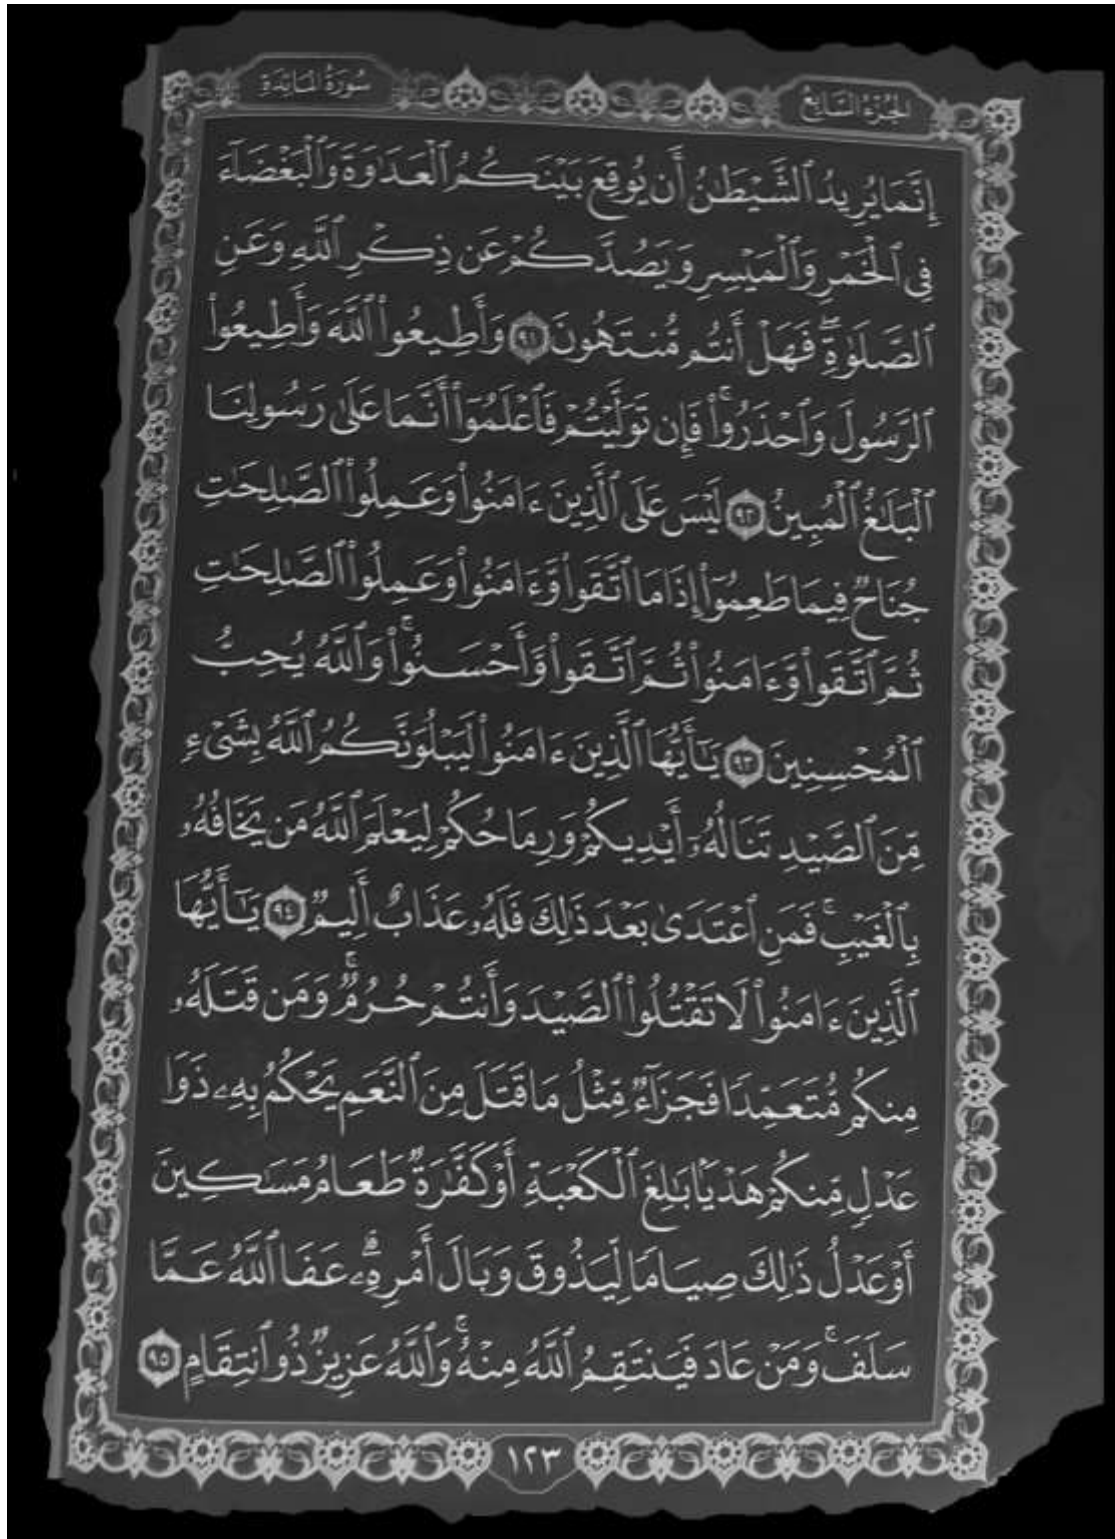 الجزء السابع
سورة المائدة
إِنَّمَا يُرِيدُ ٱلشَّيْطَٰنُ أَن يُوقِعَ بَيْنَكُمُ ٱلْعَدَٰوَةَ وَٱلْبَغْضَآءَ
فِى ٱلْخَمْرِ وَٱلْمَيْسِرِ وَيَصُدَّكُمْ عَن ذِكْرِ ٱللَّهِ وَعَنِ
ٱلصَّلَوٰةِ ۖ فَهَلْ أَنتُم مُّنتَهُونَ ٩١ وَأَطِيعُوا۟ ٱللَّهَ وَأَطِيعُوا۟
ٱلرَّسُولَ وَٱحْذَرُوا۟ ۚ فَإِن تَوَلَّيْتُمْ فَٱعْلَمُوٓا۟ أَنَّمَا عَلَىٰ رَسُولِنَا
ٱلْبَلَٰغُ ٱلْمُبِينُ ٩٢ لَيْسَ عَلَى ٱلَّذِينَ ءَامَنُوا۟ وَعَمِلُوا۟ ٱلصَّٰلِحَٰتِ
جُنَاحٌ فِيمَا طَعِمُوٓا۟ إِذَا مَا ٱتَّقَوا۟ وَّءَامَنُوا۟ وَعَمِلُوا۟ ٱلصَّٰلِحَٰتِ
ثُمَّ ٱتَّقَوا۟ وَّءَامَنُوا۟ ثُمَّ ٱتَّقَوا۟ وَّأَحْسَنُوا۟ ۚ وَٱللَّهُ يُحِبُّ
ٱلْمُحْسِنِينَ ٩٣ يَٰٓأَيُّهَا ٱلَّذِينَ ءَامَنُوا۟ لَيَبْلُوَنَّكُمُ ٱللَّهُ بِشَىْءٍ
مِّنَ ٱلصَّيْدِ تَنَالُهُۥٓ أَيْدِيكُمْ وَرِمَاحُكُمْ لِيَعْلَمَ ٱللَّهُ مَن يَخَافُهُۥ
بِٱلْغَيْبِ ۚ فَمَنِ ٱعْتَدَىٰ بَعْدَ ذَٰلِكَ فَلَهُۥ عَذَابٌ أَلِيمٌ ٩٤ يَٰٓأَيُّهَا
ٱلَّذِينَ ءَامَنُوا۟ لَا تَقْتُلُوا۟ ٱلصَّيْدَ وَأَنتُمْ حُرُمٌ ۚ وَمَن قَتَلَهُۥ
مِنكُم مُّتَعَمِّدًا فَجَزَآءٌ مِّثْلُ مَا قَتَلَ مِنَ ٱلنَّعَمِ يَحْكُمُ بِهِۦ ذَوَا
عَدْلٍ مِّنكُمْ هَدْيًۢا بَٰلِغَ ٱلْكَعْبَةِ أَوْ كَفَّٰرَةٌ طَعَامُ مَسَٰكِينَ
أَوْ عَدْلُ ذَٰلِكَ صِيَامًا لِّيَذُوقَ وَبَالَ أَمْرِهِۦ ۗ عَفَا ٱللَّهُ عَمَّا
سَلَفَ ۚ وَمَنْ عَادَ فَيَنتَقِمُ ٱللَّهُ مِنْهُ ۗ وَٱللَّهُ عَزِيزٌ ذُو ٱنتِقَامٍ ٩٥
١٢٣